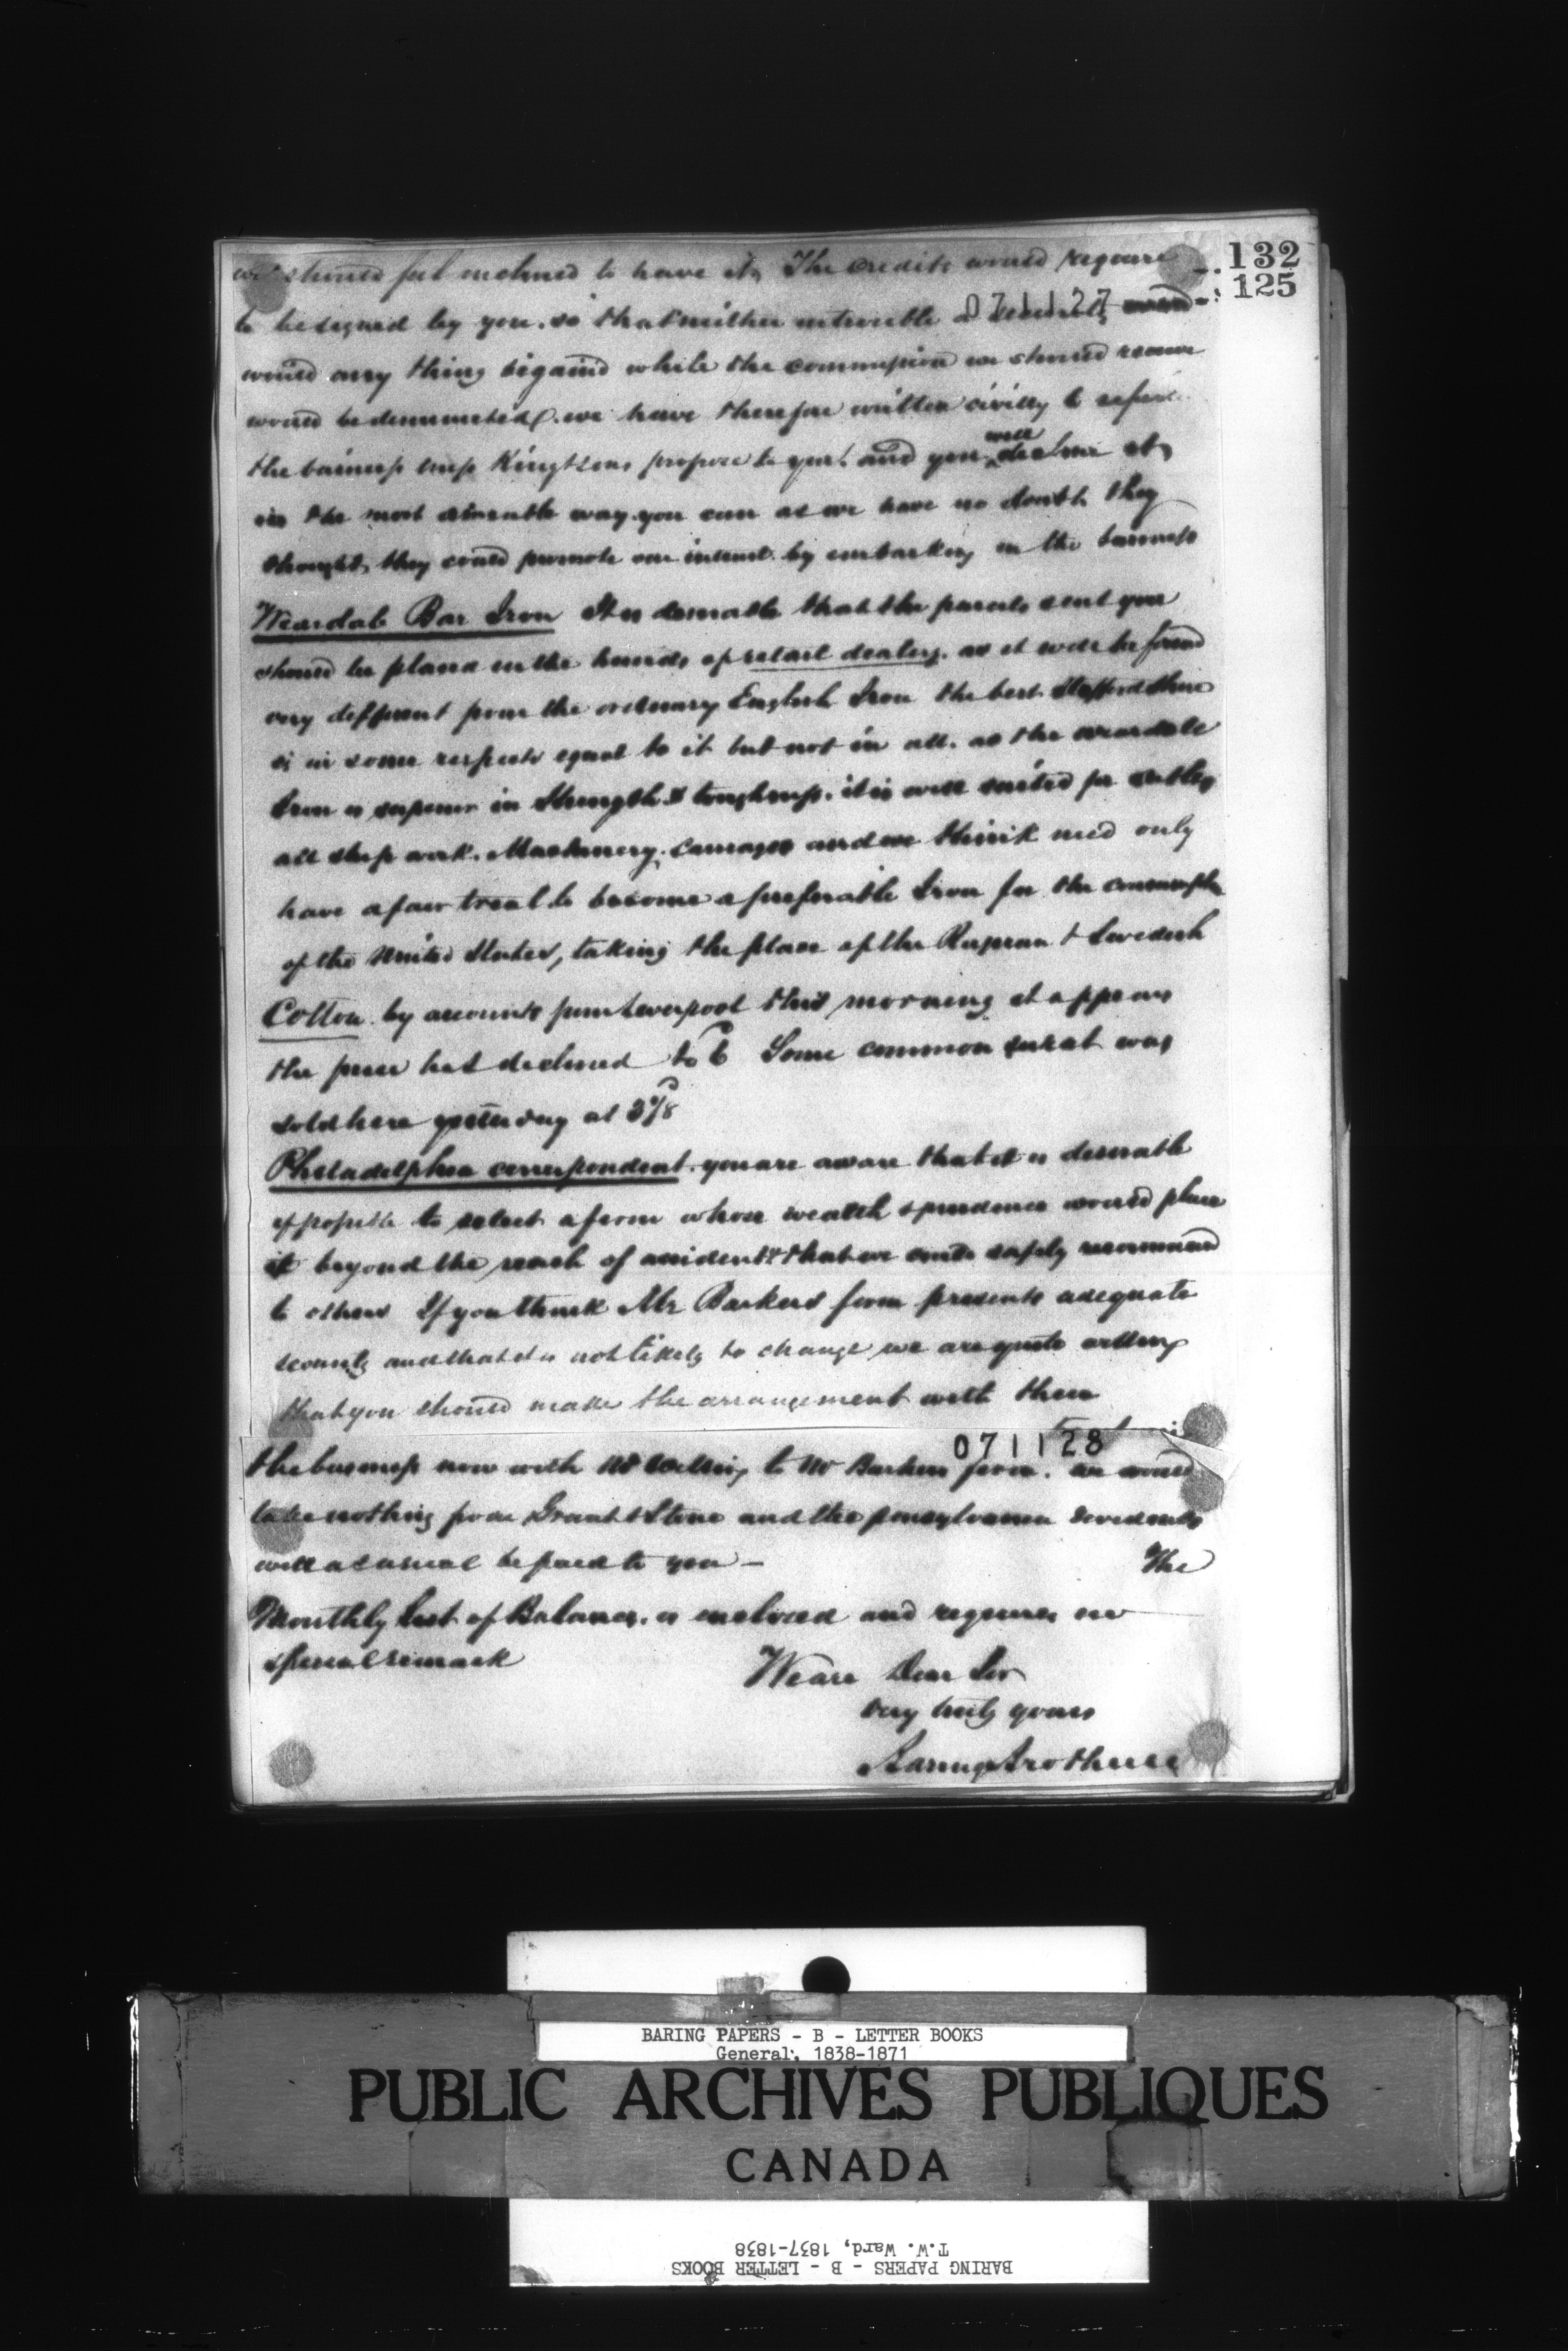 132
125
we should feel inclined to have it, The credits would require
071127
to be signed by you. so that neither in trouble or security
would any thing be gained while the commission we should receive
would be diminished. we have therefore written civilly to
the business Kingstons propose to you. and you will decline it
in the most amiable way you can as we have no doubt they
thought they could promote our interest by embarking in the business
Weardale Bar Iron It is desirable that the parcels sent you
should be placed in the hands of retail dealers. as it will be found
very different from the ordinary English Iron the best Staffordshire
is in some respects equal to it but not in all. as the weardale
Iron is superior in Strength & toughness. it is well suited for
all ship work. Machinery, carriages and we think need only
have a fair trial to become a preferable Iron for the consumption
of the United States, taking the place of the Russian & Swedish
Cotton by accounts from Liverpool this morning it appears
the price has declined to 6 Some common surat was
sold here yesterday at 3⅞
Philadelphia correspondent. you are aware that it is desirable
if possible to select a firm whose wealth & prudence would place
it beyond the reach of accidents & that we could safely recommend
to others If you think Mr Barkers firm presents adequate
security and that it is not likely to change we are quite willing
that you should make the arrangement with them
071128
the business now with to Mr Barkers firm. we would
take nothing from Grant & Stone and the pensylvania dividends
will as usual be paid to you — The
Monthly List of Balances. is enclosed and requires no
special remark
We are Dear Sir
very truly yours
Baring Brothers
BARING PAPERS - B - LETTER BOOKS
General, 1838-1871
PUBLIC ARCHIVES PUBLIQUES
CANADA
BARING PAPERS - B - LETTER BOOKS
T.W. Ward, 1837-1838